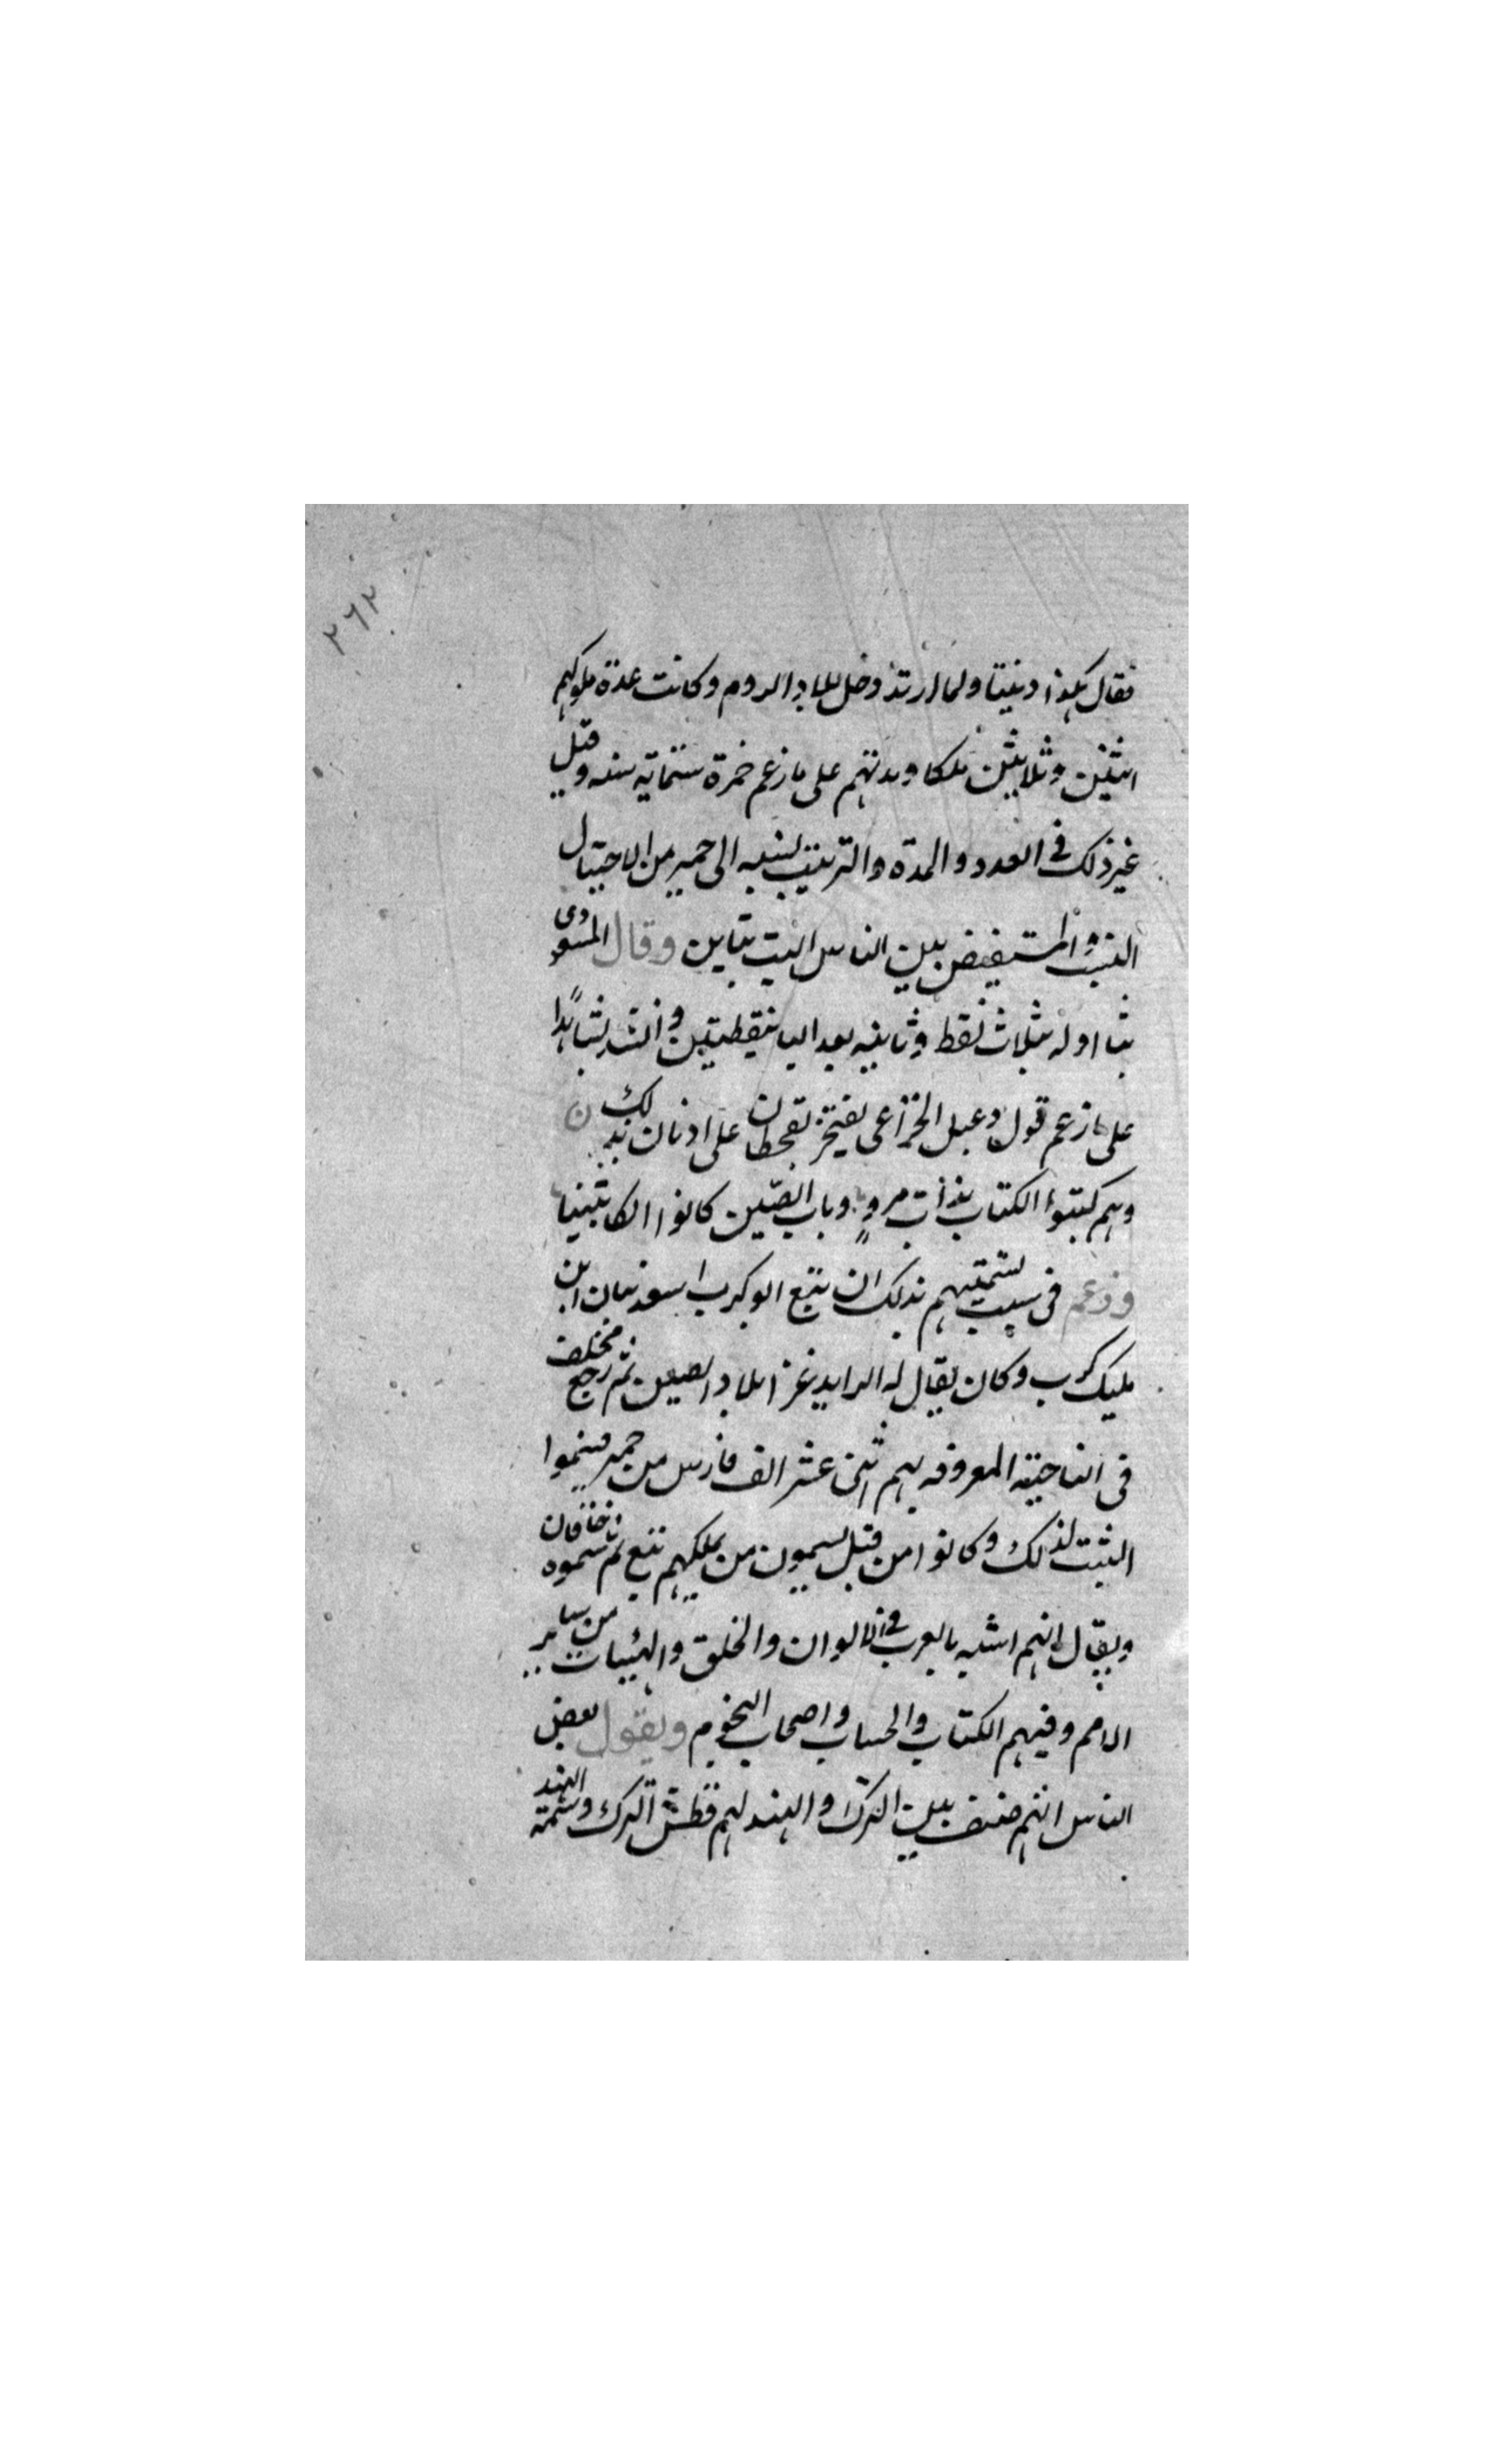 ٢٦٢
فقال هكذا دنيا ولما ارتد دخل بلاد الروم وكانت عدة ملوكهم
اثنين وثلاثين ملكا ومدتهم على ما زعم حمزة ستماية سنه وقيل
غير ذلك في العدد والمدة والترتيب نسبه الى حمير من الاجيال
التبت والمستفيض بين الناس التبت بتاين وقال المسعودي
بثا اوله بثلاث نقط وثانيه بعد اليا بنقطتين وانشد شاهدا
على ما زعم قول دعبل الخزاعي يفتخر بقحطان على ادنان بذلك
وهم كتبوا الكتاب بذات مرو وباب الصين كانوا الكاتبينا
وزعم في سبب تسميتهم بذلك ان تبع ابو كرب اسعد تبان ابن
مليك كرب وكان يقال له الرايد غزا بلاد الصين ثم رجع فخلف
في الناحية المعروفه بهم اثنى عشر الف فارس من حمير فسموا
الثبت لذلك وكانوا من قبل يسمون من يملكهم تبع ثم سموه خاقان
ويقال انهم اشبه بالعرب في الالوان والخلق والهيئات من ساير
الامم وفيهم الكتاب والحساب واصحاب النجوم ويقول بعض
الناس انهم صنف بين الترك والهند لهم فطس الترك وسمرة الهند